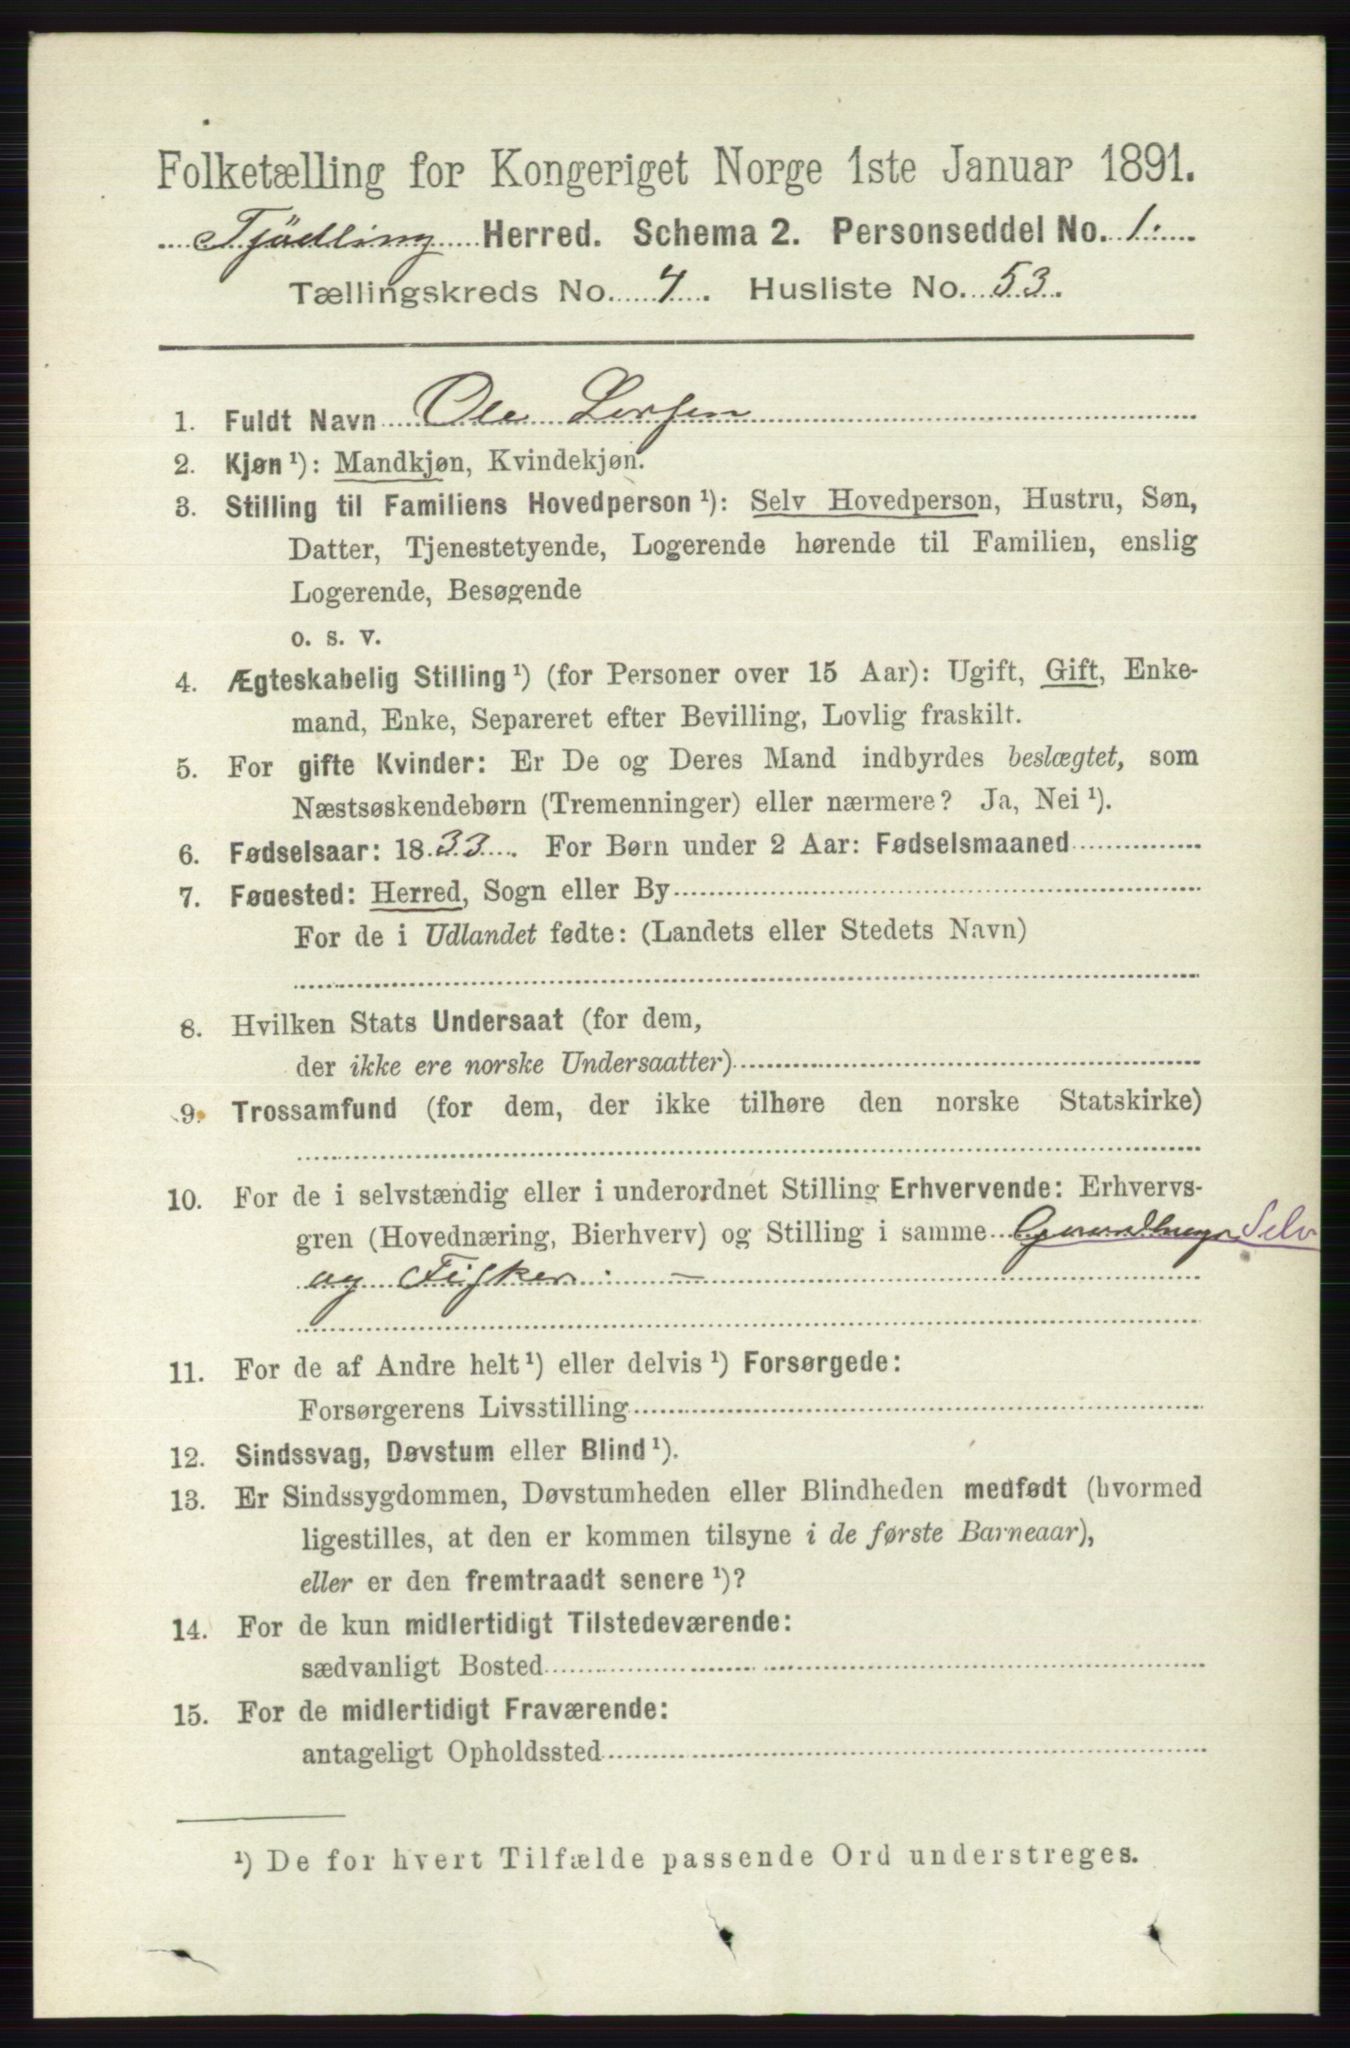 Folketælling for Kongeriget Norge 1ste Januar 1891.
Tjödling Herred. Schema 2. Personseddel No. 1.
Tællingskreds No. 4. Husliste No. 53.
1. Fuldt Navn Ole Larsen
2. Kjøn ¹): Mandkjøn, Kvindekjøn.
3. Stilling til Familiens Hovedperson ¹): Selv Hovedperson, Hustru, Søn,
Datter, Tjenestetyende, Logerende hørende til Familien, enslig
Logerende, Besøgende
o. s. v.
4. Ægteskabelig Stilling ¹) (for Personer over 15 Aar): Ugift, Gift, Enke-
mand, Enke, Separeret efter Bevilling, Lovlig fraskilt.
5. For gifte Kvinder: Er De og Deres Mand indbyrdes beslægtet, som
Næstsøskendebørn (Tremenninger) eller nærmere? Ja, Nei ¹).
6. Fødselsaar: 1833. For Børn under 2 Aar: Fødselsmaaned
7. Fødested: Herred, Sogn eller By
For de i Udlandet fødte: (Landets eller Stedets Navn)
8. Hvilken Stats Undersaat (for dem,
der ikke ere norske Undersaatter)
9. Trossamfund (for dem, der ikke tilhøre den norske Statskirke)
10. For de i selvstændig eller i underordnet Stilling Erhvervende: Erhvervs-
gren (Hovednæring, Bierhverv) og Stilling i samme Selv
og Fisker. —
11. For de af Andre helt ¹) eller delvis ¹) Forsørgede:
Forsørgerens Livsstilling
12. Sindssvag, Døvstum eller Blind ¹).
13. Er Sindssygdommen, Døvstumheden eller Blindheden medfødt (hvormed
ligestilles, at den er kommen tilsyne i de første Barneaar),
eller er den fremtraadt senere ¹)?
14. For de kun midlertidigt Tilstedeværende:
sædvanligt Bosted
15. For de midlertidigt Fraværende:
antageligt Opholdssted
¹) De for hvert Tilfælde passende Ord understreges.